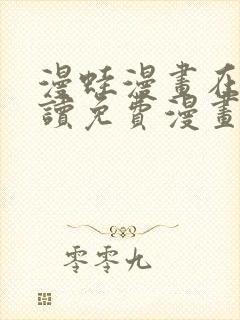 漫蛙漫畫在
讀免費漫畫
零零九